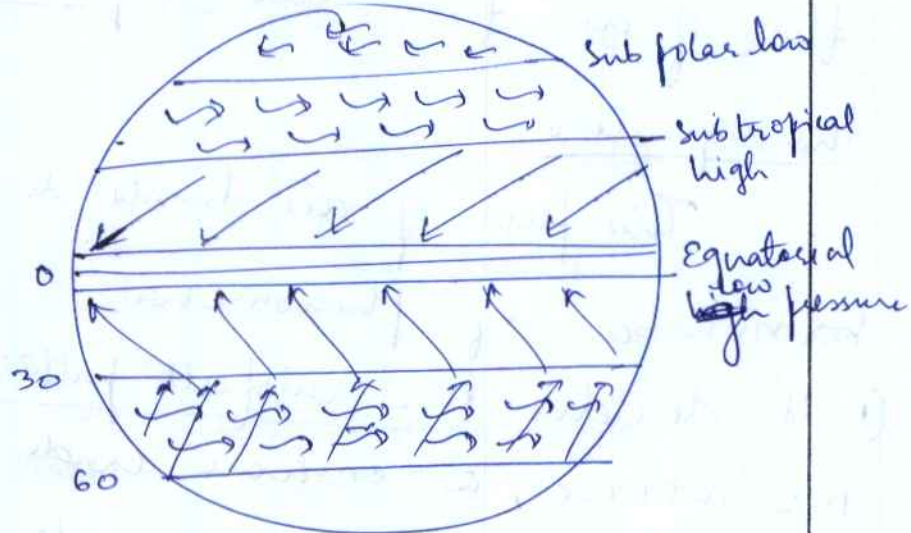 Sub polar low
Subtropical
high
0
Equatorial
low
pressure
30
60